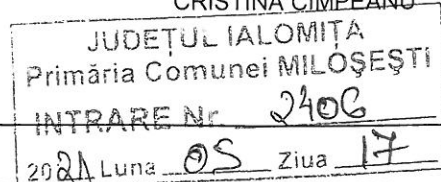 CRISTINA CÎMPEANU
JUDEŢUL IALOMIŢA
Primăria Comunei MILOŞEŞTI
INTRARE Nr. 2406
2021 Luna 05 Ziua 17